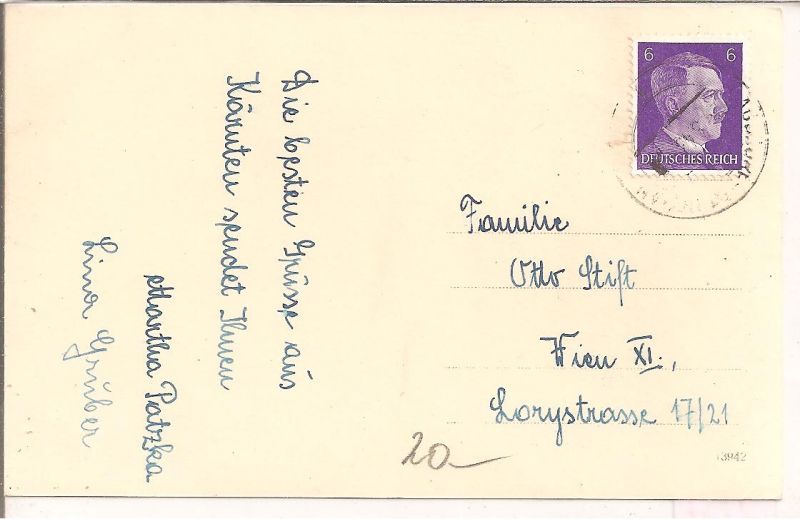 Die besten Grüsse aus
Kärnten sendet Ihnen
Martha Patzka
Lina Grüber
6 6
DEUTSCHES REICH
Familie
Otto Stift
Wien XI.,
Lorystrasse 17/21
20
3942